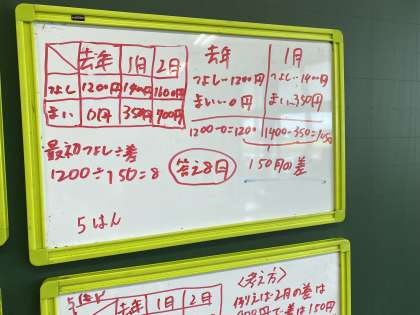 去年 1月 2月
つよし 1200円 1400円 1600円
まい 0円 350円 700円
最初つよし÷差
1200÷150=8
答え8月
5はん
去年
つよし…1200円
まい…0円
1200-0=1200
1月
つよし…1400円
まい…350円
1400-350=1050
150円の差
5はん
去年 1月 2月
〈考え方〉
例えば2月の差は
900円で差は150円